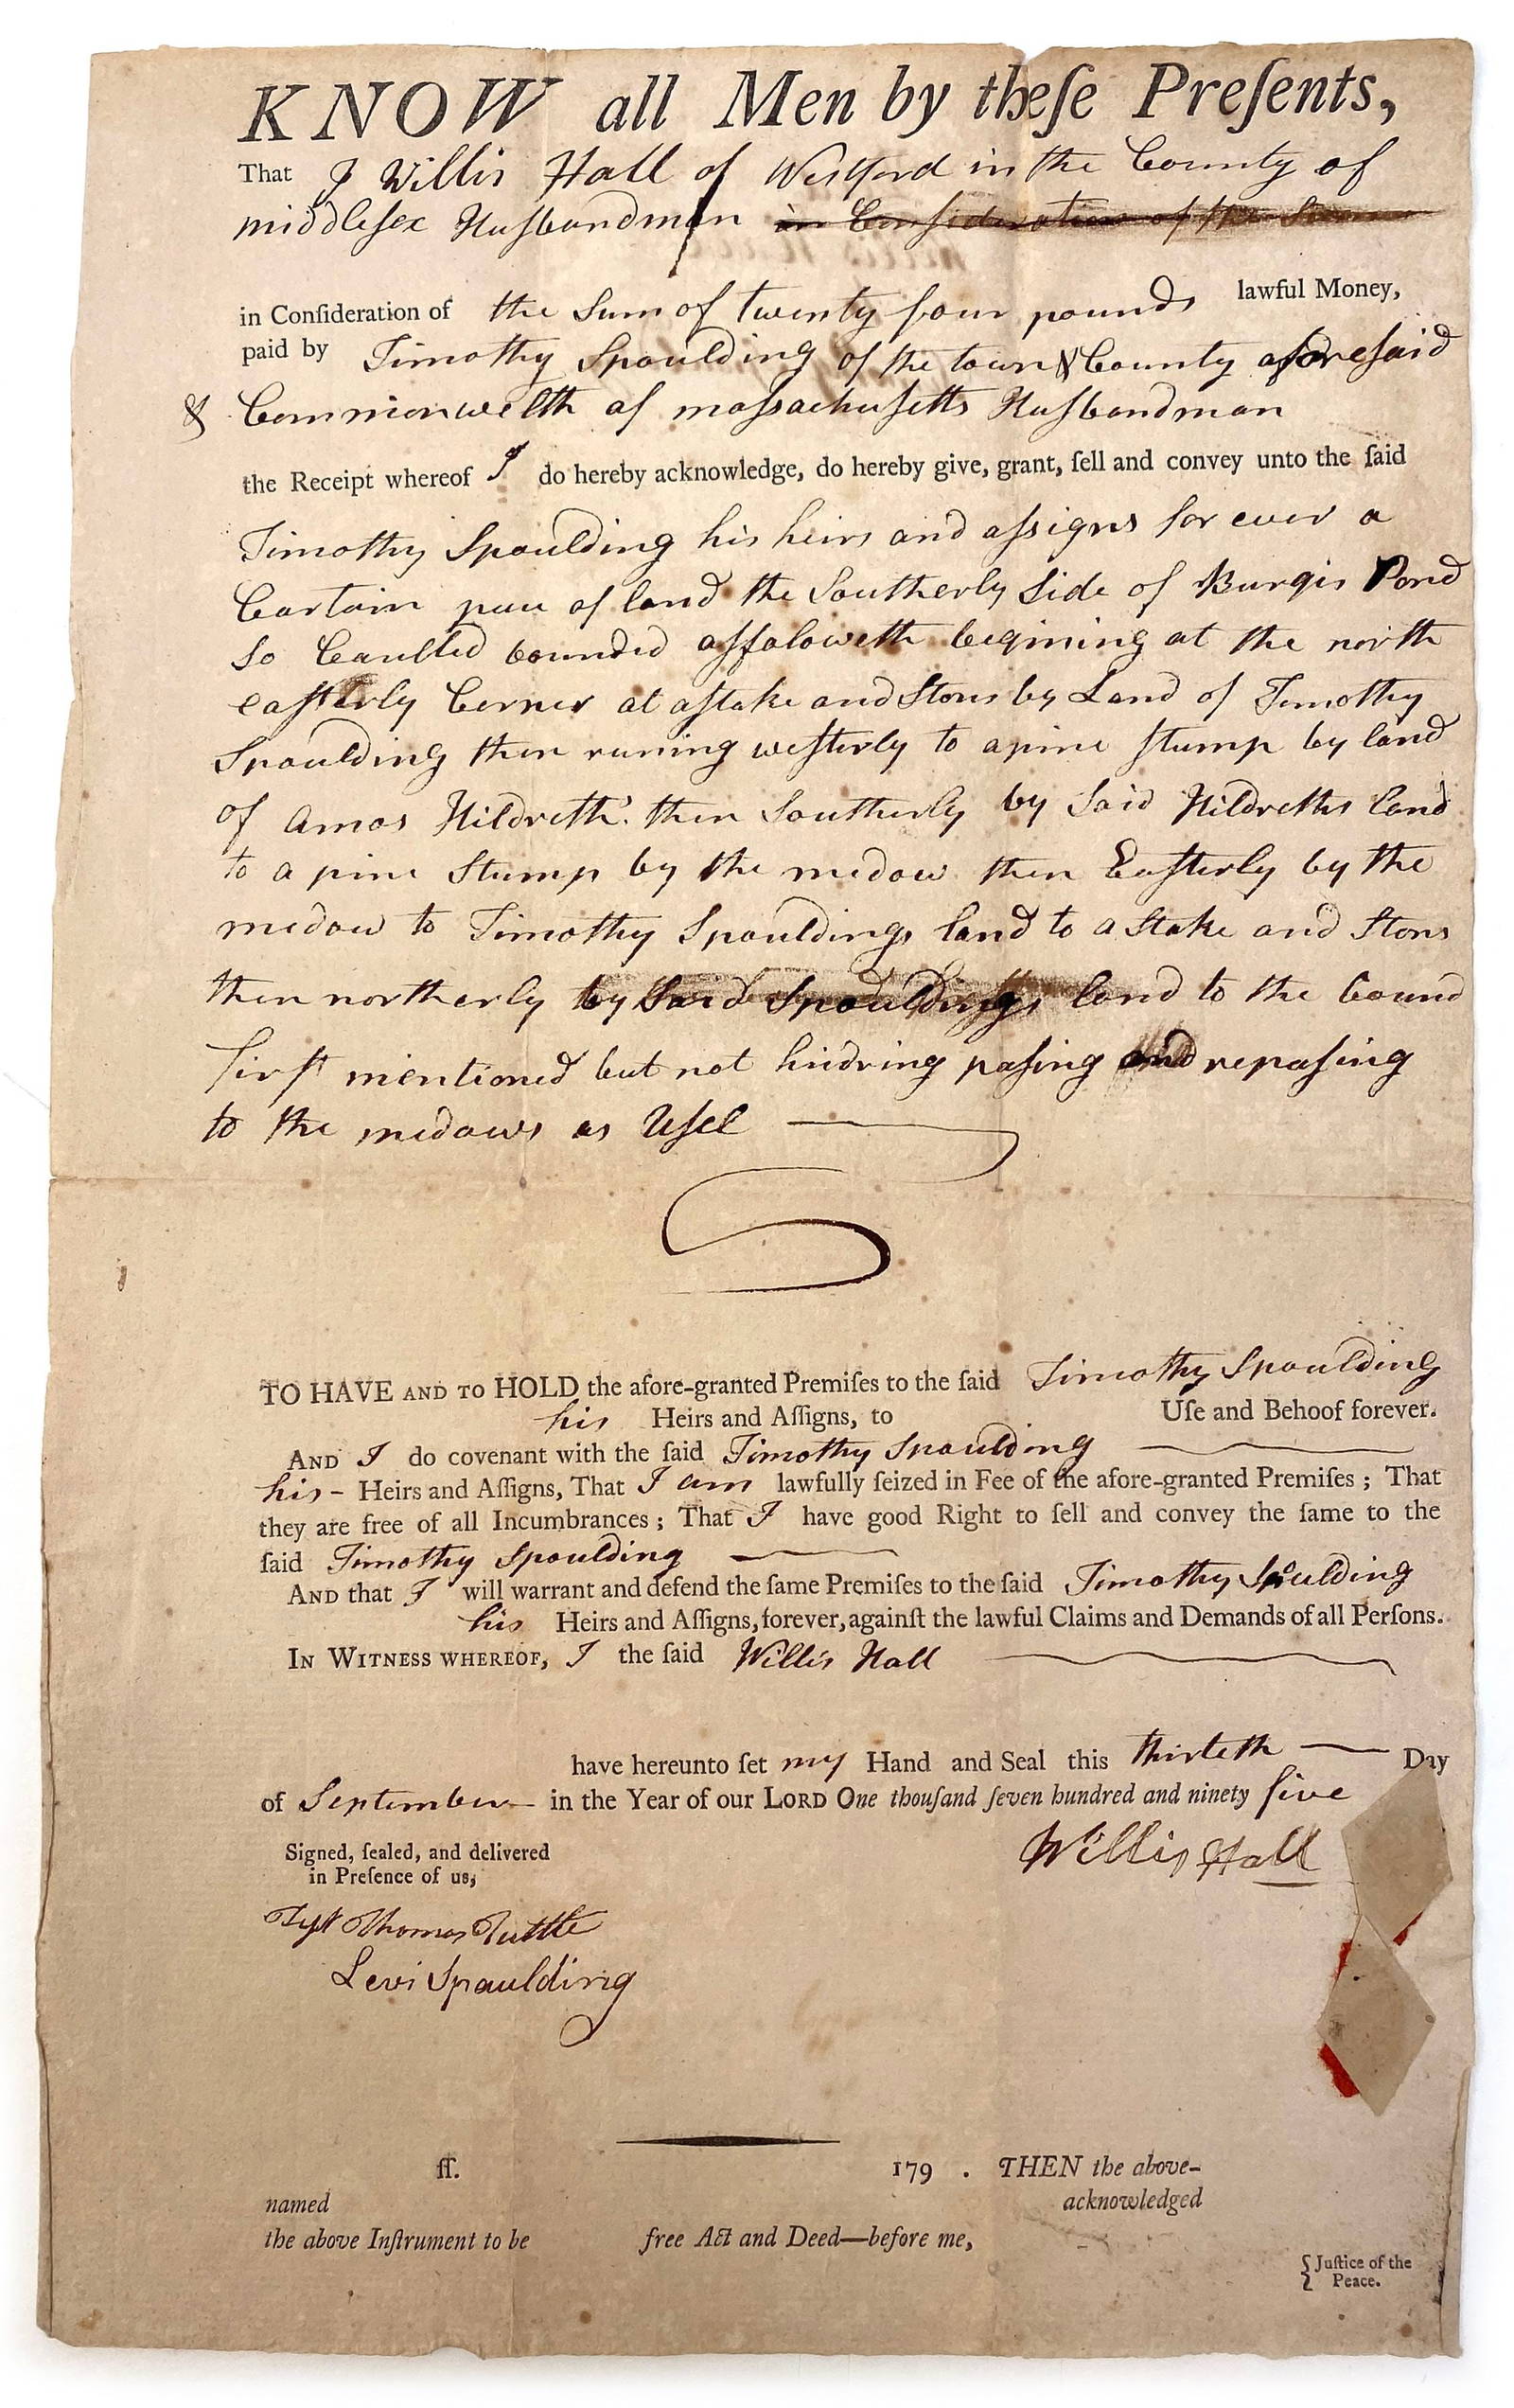 KNOW all Men by theſe Preſents,
That I Willis Hall of Westford in the County of
middleſex Huſbandman in Conſideration of the Sum
in Conſideration of the Sum of twenty four pounds lawful Money,
paid by Timothy Spoulding of the town & County aforeſaid
& Commonwelth of maſsachuſetts Huſbandman
the Receipt whereof I do hereby acknowledge, do hereby give, grant, ſell and convey unto the ſaid
Timothy Spoulding his heirs and aſsigns for ever a
Cartain pece of land the Southerly Side of Burgis Pond
So Caulled bounded aſfaloweth begining at the north
eaſterly Corner at aſtake and Stons by Land of Timothy
Spoulding then runing weſterly to apine ſtump by land
of Amos Hildreth then Southerly by Said Hildreths land
to a pine Stump by the medow then Eaſterly by the
medow to Timothy Spouldings land to a Stake and Stons
then northerly by Said Spouldings land to the bound
firſt mentioned but not hindring paſing and repaſing
to the medows as Uſel
TO HAVE AND TO HOLD the afore-granted Premiſes to the ſaid Timothy Spoulding
his Heirs and Aſſigns, to Uſe and Behoof forever.
AND I do covenant with the ſaid Timothy Spoulding
his - Heirs and Aſſigns, That I am lawfully ſeized in Fee of the afore-granted Premiſes ; That
they are free of all Incumbrances ; That I have good Right to ſell and convey the ſame to the
ſaid Timothy Spoulding
AND that I will warrant and defend the ſame Premiſes to the ſaid Timothy Spoulding
his Heirs and Aſſigns, forever, againſt the lawful Claims and Demands of all Perſons.
IN WITNESS WHEREOF, I the ſaid Willis Hall
have hereunto ſet my Hand and Seal this thirteth Day
of September in the Year of our LORD One thouſand ſeven hundred and ninety five
Willis Hall
Signed, ſealed, and delivered
in Preſence of us,
Teſt Thomas Tuttle
Levi Spaulding
ſſ. 179 . THEN the above-
named acknowledged
the above Inſtrument to be free Act and Deed—before me,
{ Juſtice of the
Peace.